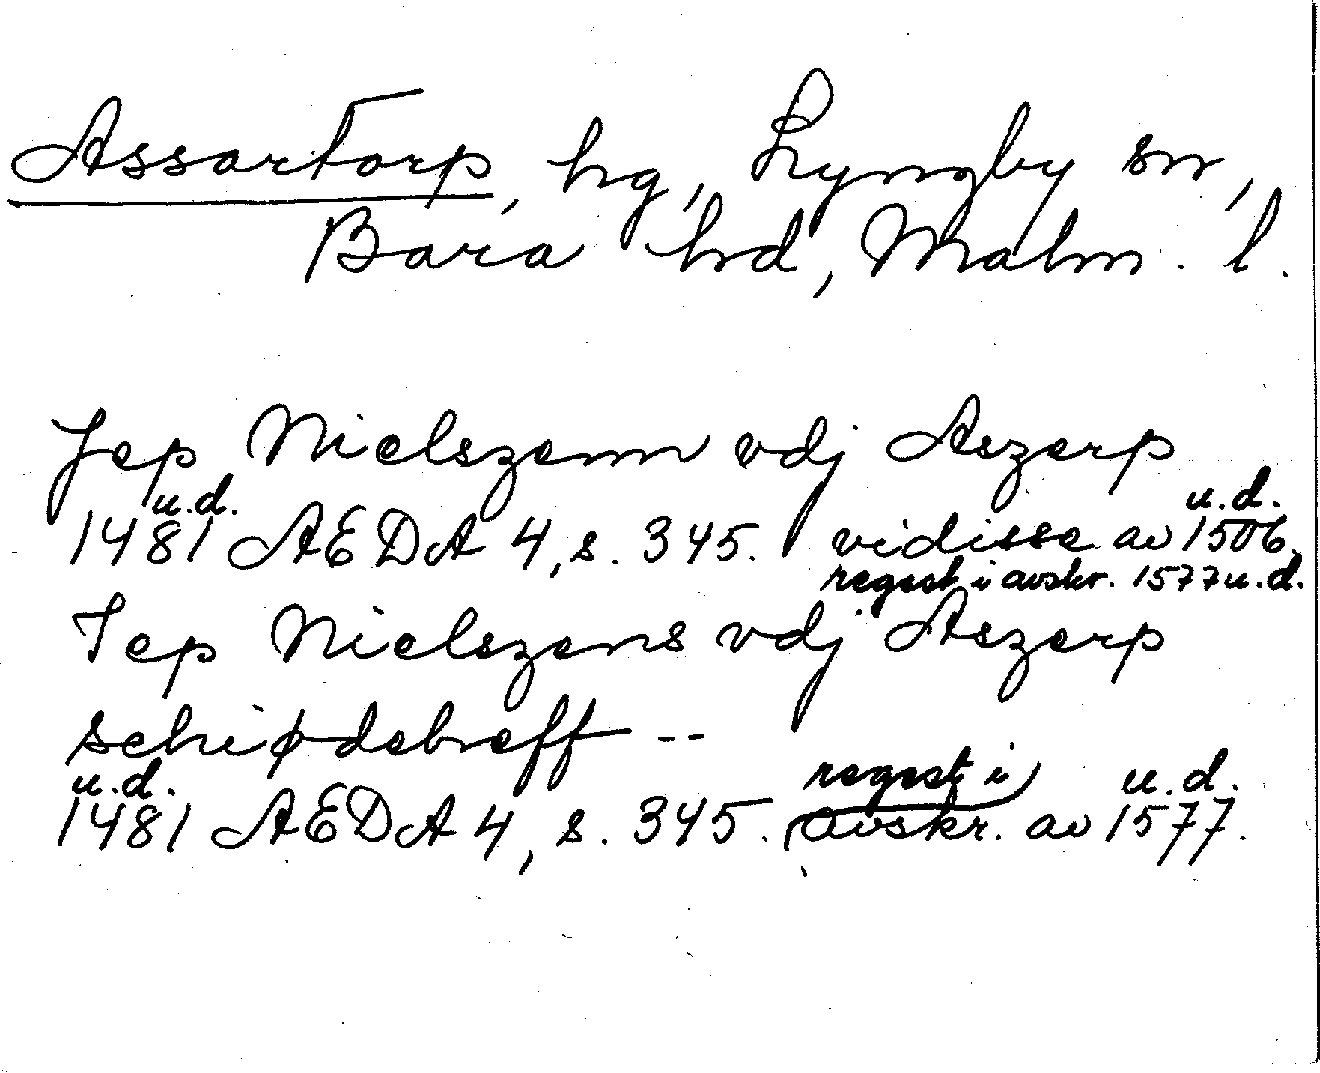 Assartorp, hg, Lyngby sn,
Bara hd, Malm. l.
Jep Nielszenn vdj Aszerp
u.d. u.d.
1481 AEDA 4, s. 345. vidisse av 1506,
regest i avskr. 1577 u.d.
Iep Nielszens vdj Aszerp
schiødebreff --
u.d. regest i u.d.
1481 AEDA 4, s. 345. (avskr. av 1577.